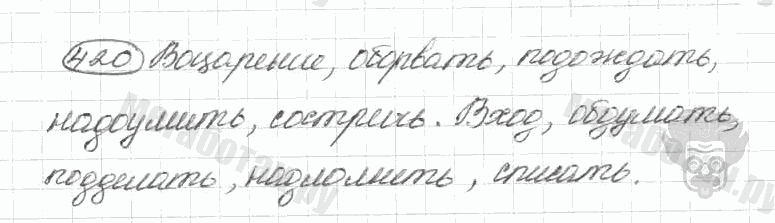 420 Воцарение, оборвать, подождать,
надоумить, состричь. Вход, обдумать,
подделать, надломить, списать.